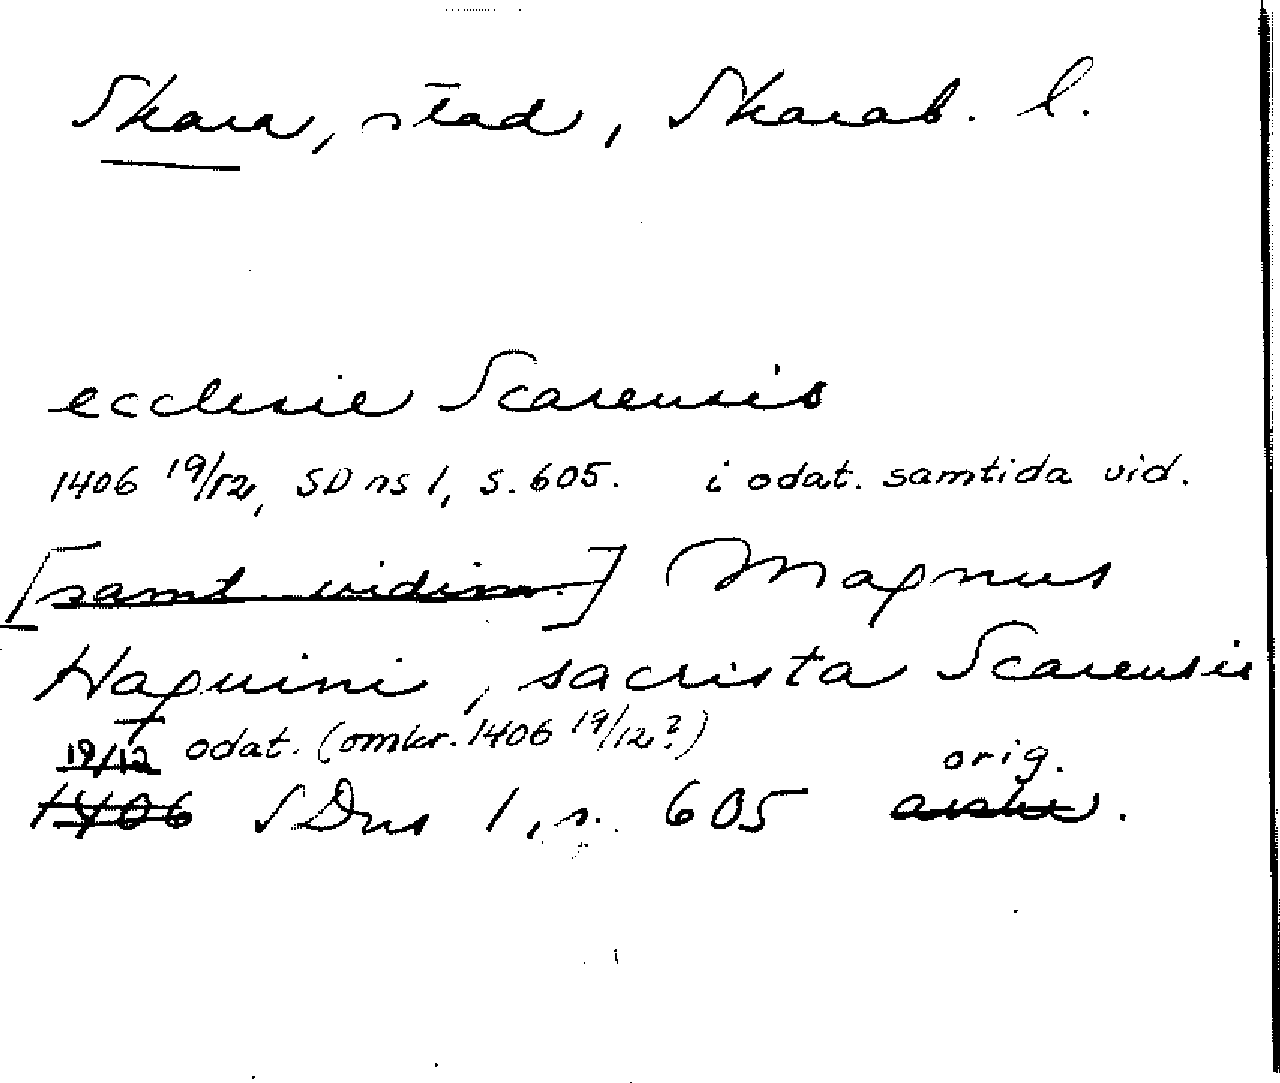 Skara, stad, Skarab. l.
ecclesie Scarensis
1406 19/12, SD ns 1, s. 605. i odat. samtida vid.
[samt. vidim.] Magnus
Haquini, sacrista Scarensis
19/12 odat. (omkr. 1406 19/12?)
orig.
1406 SDns 1, s. 605